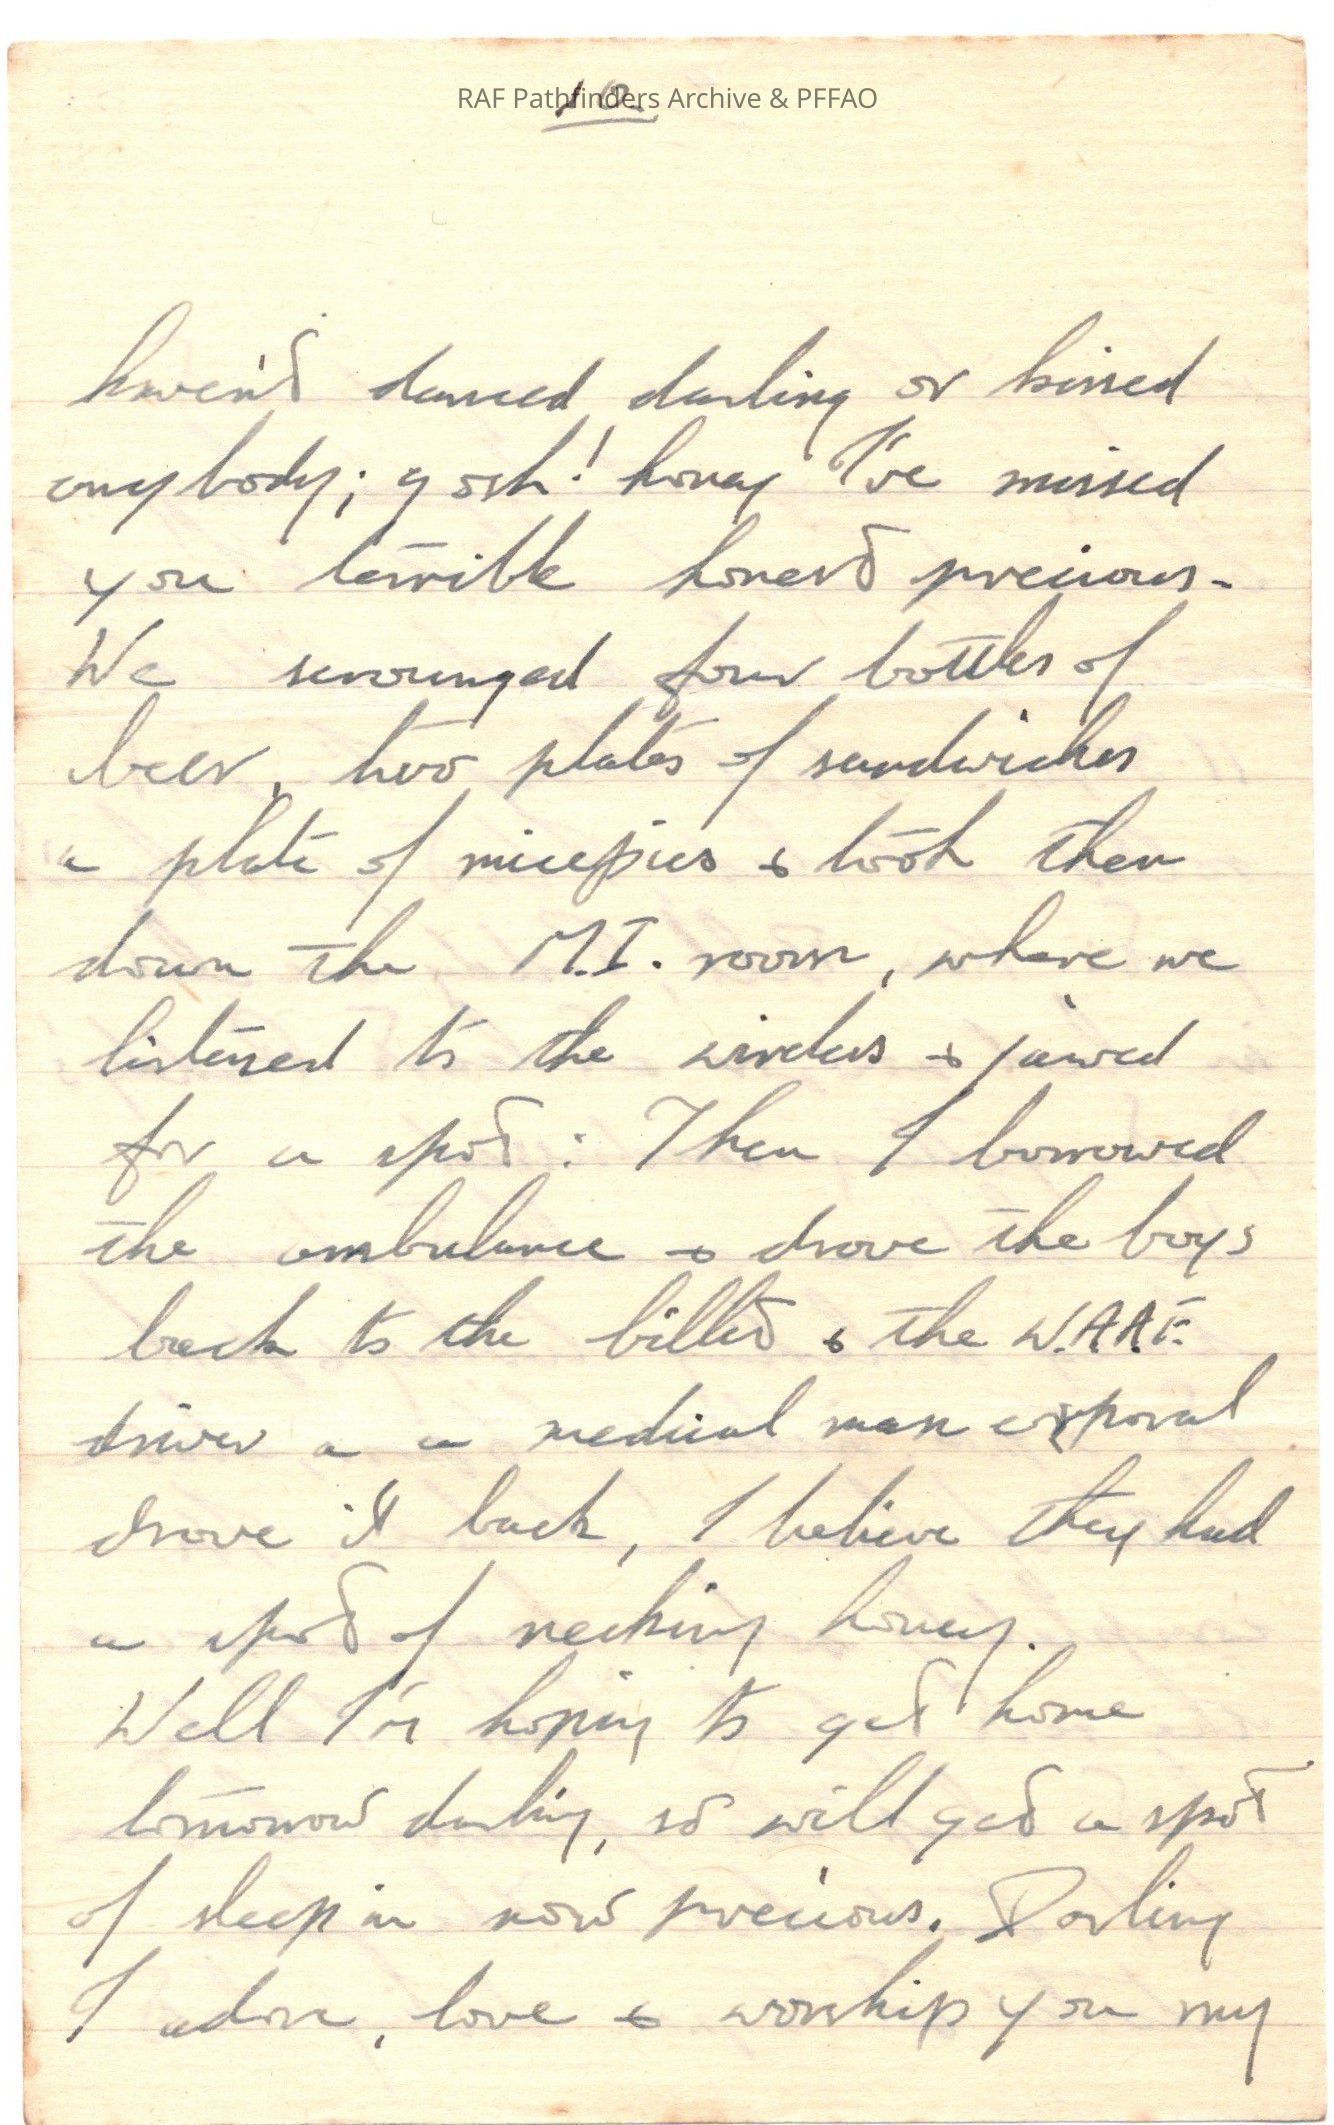 RAF Pathfinders Archive & PFFAO
haven't danced darling or kissed
anybody; gosh! honey I've missed
you terrible honest precious.
We scrounged four bottles of
beer, two plates of sandwiches
a plate of micepies & took them
down the M.I. room, where we
listened to the wireless & jawed
for a spot: Then I borrowed
the ambulance & drove the boys
back to the billet & the W.A.A.F.
driver a a medical man corporal
drove it back, I believe they had
a spot of necking honey.
Well I'm hoping to get home
tomorrow darling, so will get a spot
of sleep in now precious. Darling
I adore, love & worship you my